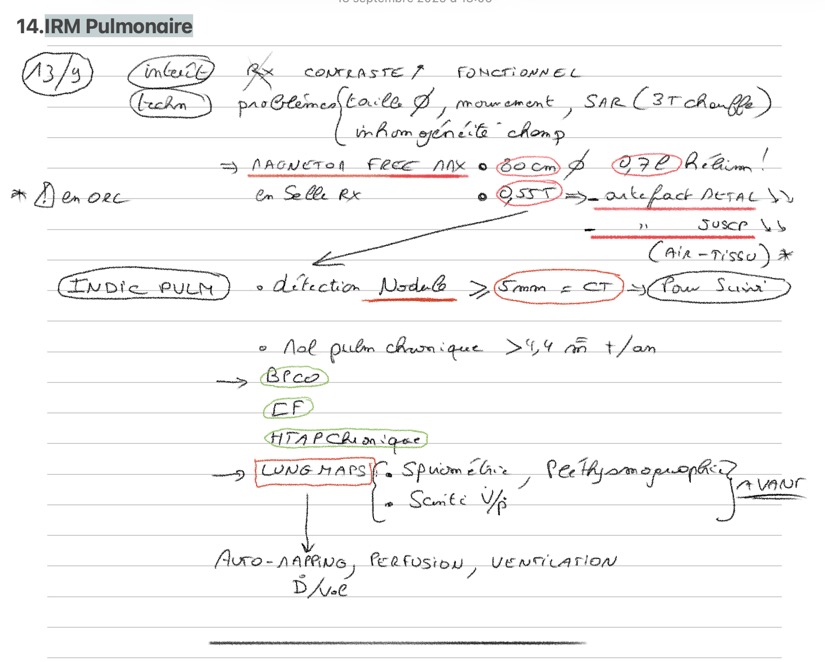 14.IRM Pulmonaire
13/9 intérêt RX CONTRASTE ↑ FONCTIONNEL
techn problèmes { taille Ø, mouvement, SAR (3T chauffe)
inhomogénéité champ
⇒ MAGNETOM FREE MAX • 80cm Ø 0,7l Hélium!
* ⚠ en ORL en Selle RX • 0,55T ⇒ - artefact METAL ↓↓
- " SUSCP ↓↓
(AIR-TISSU) *
INDIC PULM • détection Nodule ≥ 5mm = CT ⇒ Pour Suivi
• Mal pulm chronique > 4,4 m̄ +/an
→ BPCO
CF
HTAP Chronique
→ LUNG MAPS { • Spirométrie, Pléthysmographie } AVANT
• Scinti V̇/ṗ
AUTO-MAPPING, PERFUSION, VENTILATION
D̊/Vol